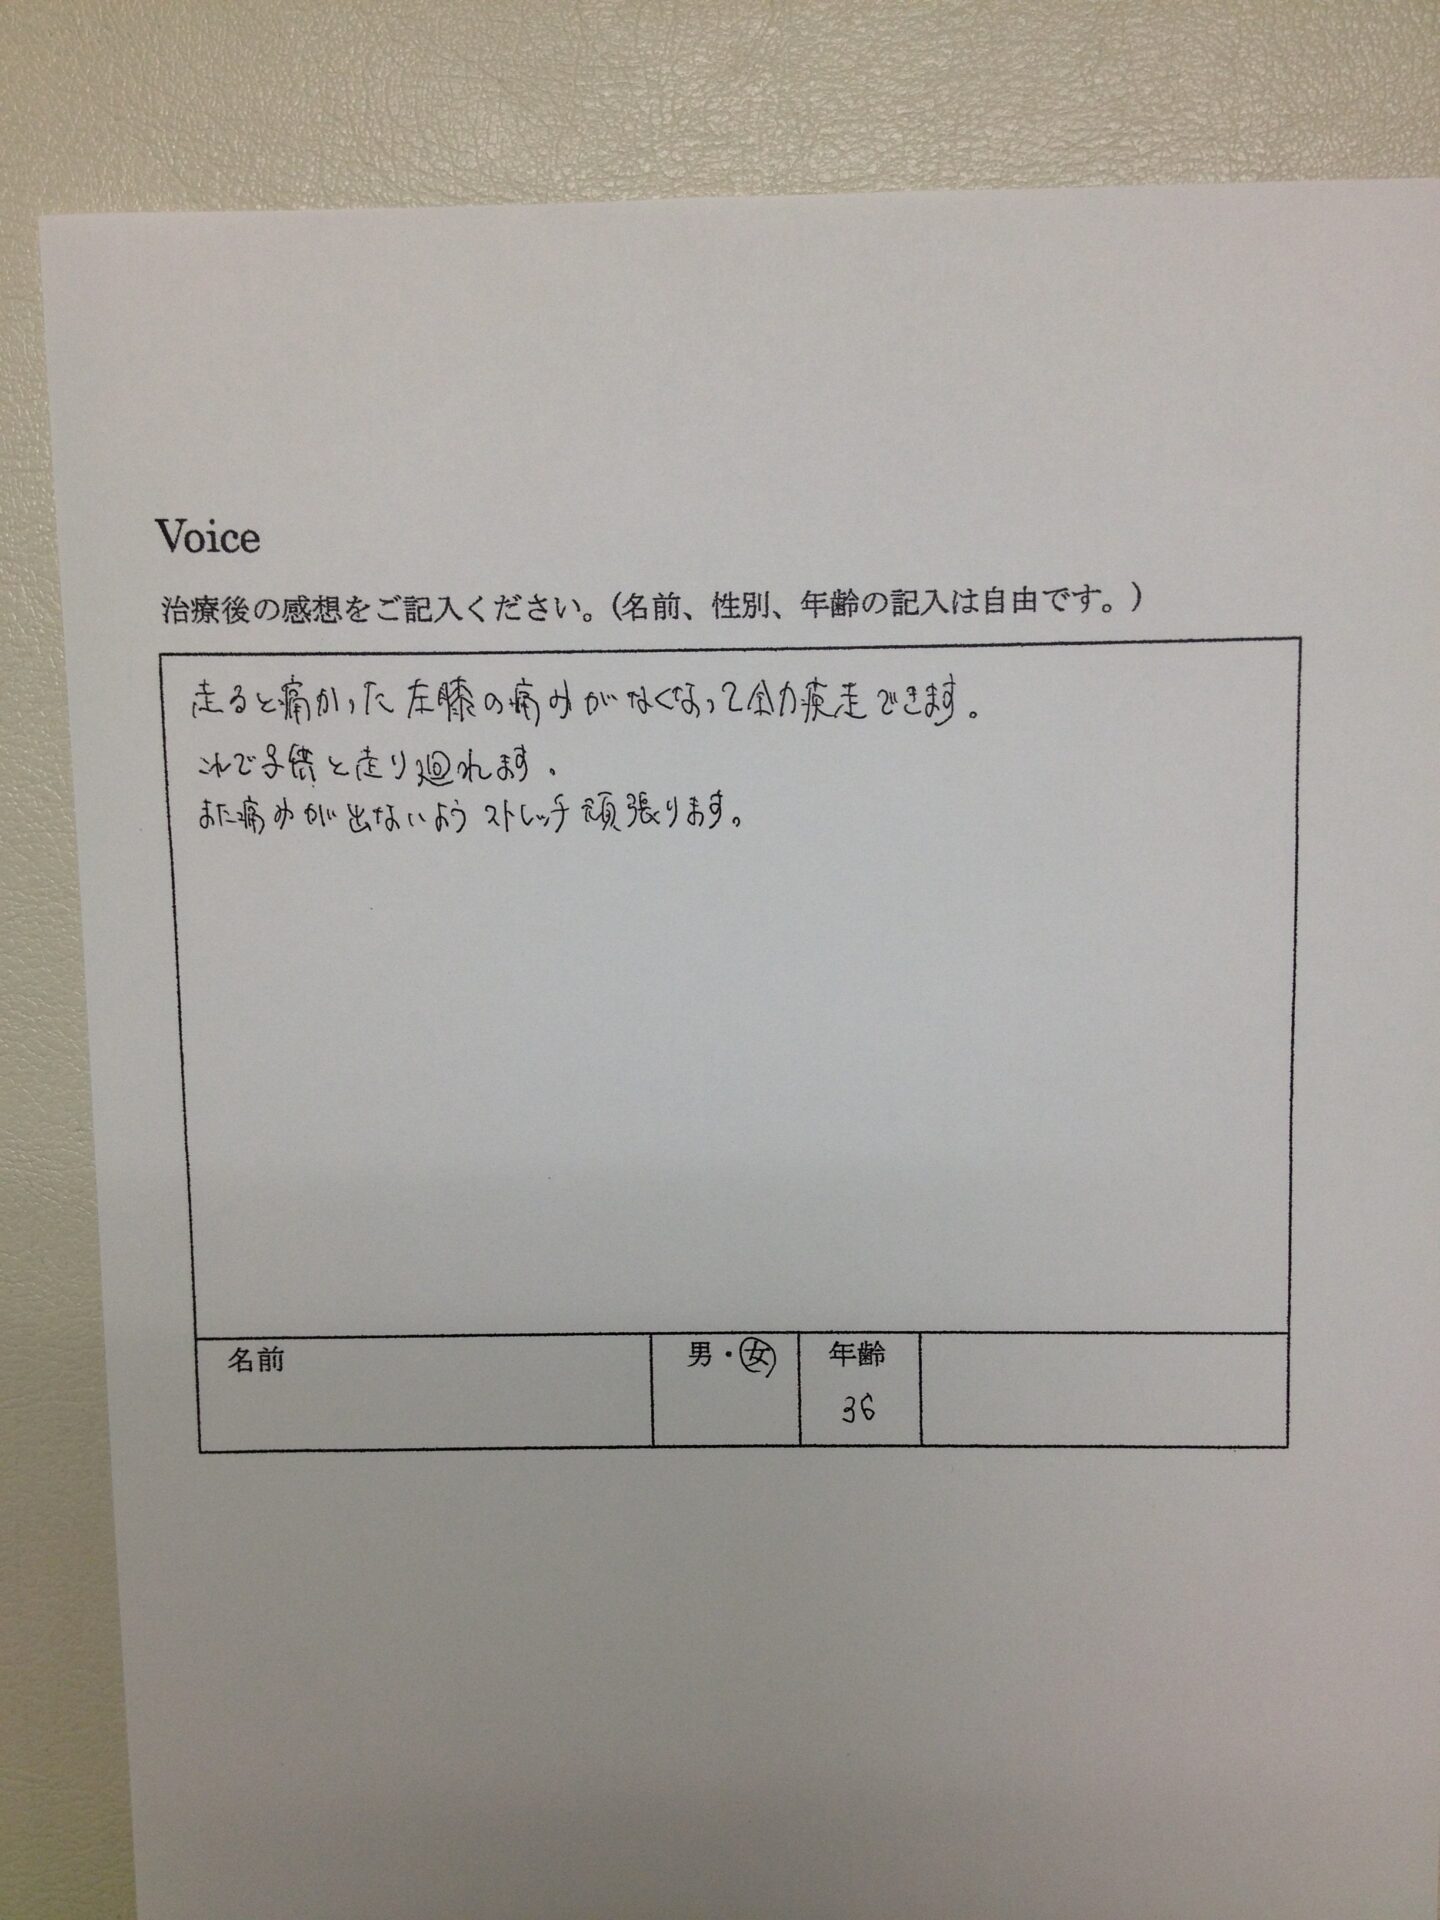 Voice
治療後の感想をご記入ください。（名前、性別、年齢の記入は自由です。）
走ると痛かった左膝の痛みがなくなって全力疾走できます。
これで子供と走り廻れます。
また痛みが出ないようストレッチ頑張ります。
名前 男・女 年齢
36